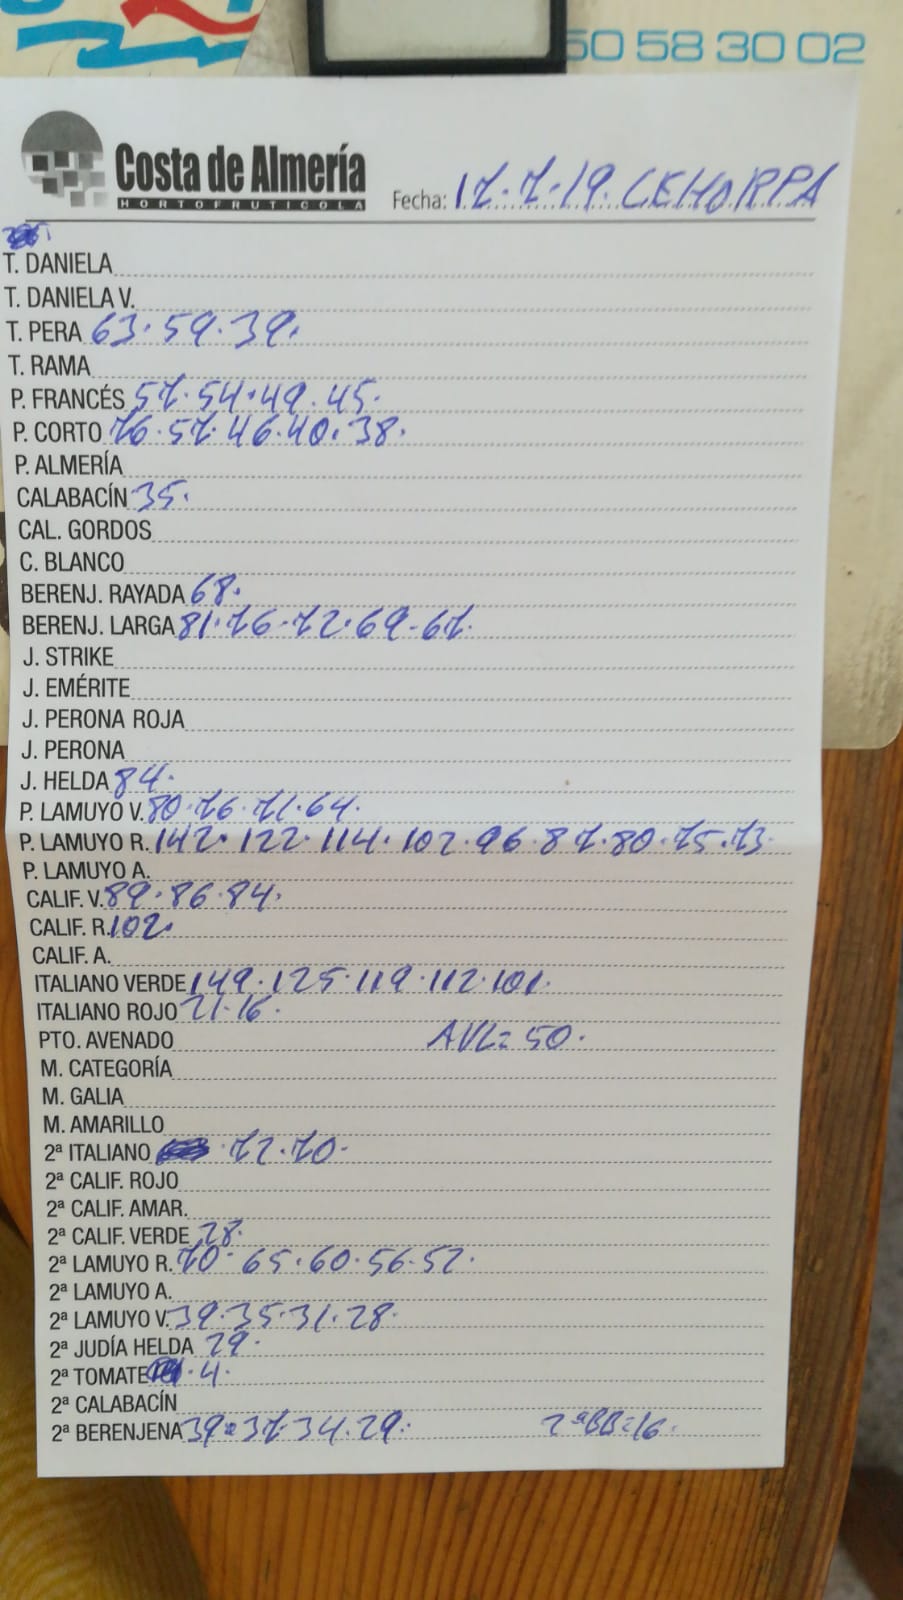 50 58 30 02
Costa de Almería
HORTOFRUTICOLA
Fecha: 17.7.19. CEHORPA
T. DANIELA
T. DANIELA V.
T. PERA 63.59.39.
T. RAMA
P. FRANCÉS 57.54.49.45.
P. CORTO 76.57.46.40.38.
P. ALMERÍA
CALABACÍN 35.
CAL. GORDOS
C. BLANCO
BERENJ. RAYADA 68.
BERENJ. LARGA 81.76.72.69.67.
J. STRIKE
J. EMÉRITE
J. PERONA ROJA
J. PERONA
J. HELDA 84.
P. LAMUYO V. 80.76.71.64.
P. LAMUYO R. 142.122.114.102.96.87.80.75.73.
P. LAMUYO A.
CALIF. V. 89.86.84.
CALIF. R. 102.
CALIF. A.
ITALIANO VERDE 149.125.119.112.101.
ITALIANO ROJO 21.16.
PTO. AVENADO AVL=50.
M. CATEGORÍA
M. GALIA
M. AMARILLO
2ª ITALIANO .72.70.
2ª CALIF. ROJO
2ª CALIF. AMAR.
2ª CALIF. VERDE 28.
2ª LAMUYO R. 70.65.60.56.52.
2ª LAMUYO A.
2ª LAMUYO V. 39.35.31.28.
2ª JUDÍA HELDA 29.
2ª TOMATE .4.
2ª CALABACÍN
2ª BERENJENA 39.37.34.29. 2ªBB=16.